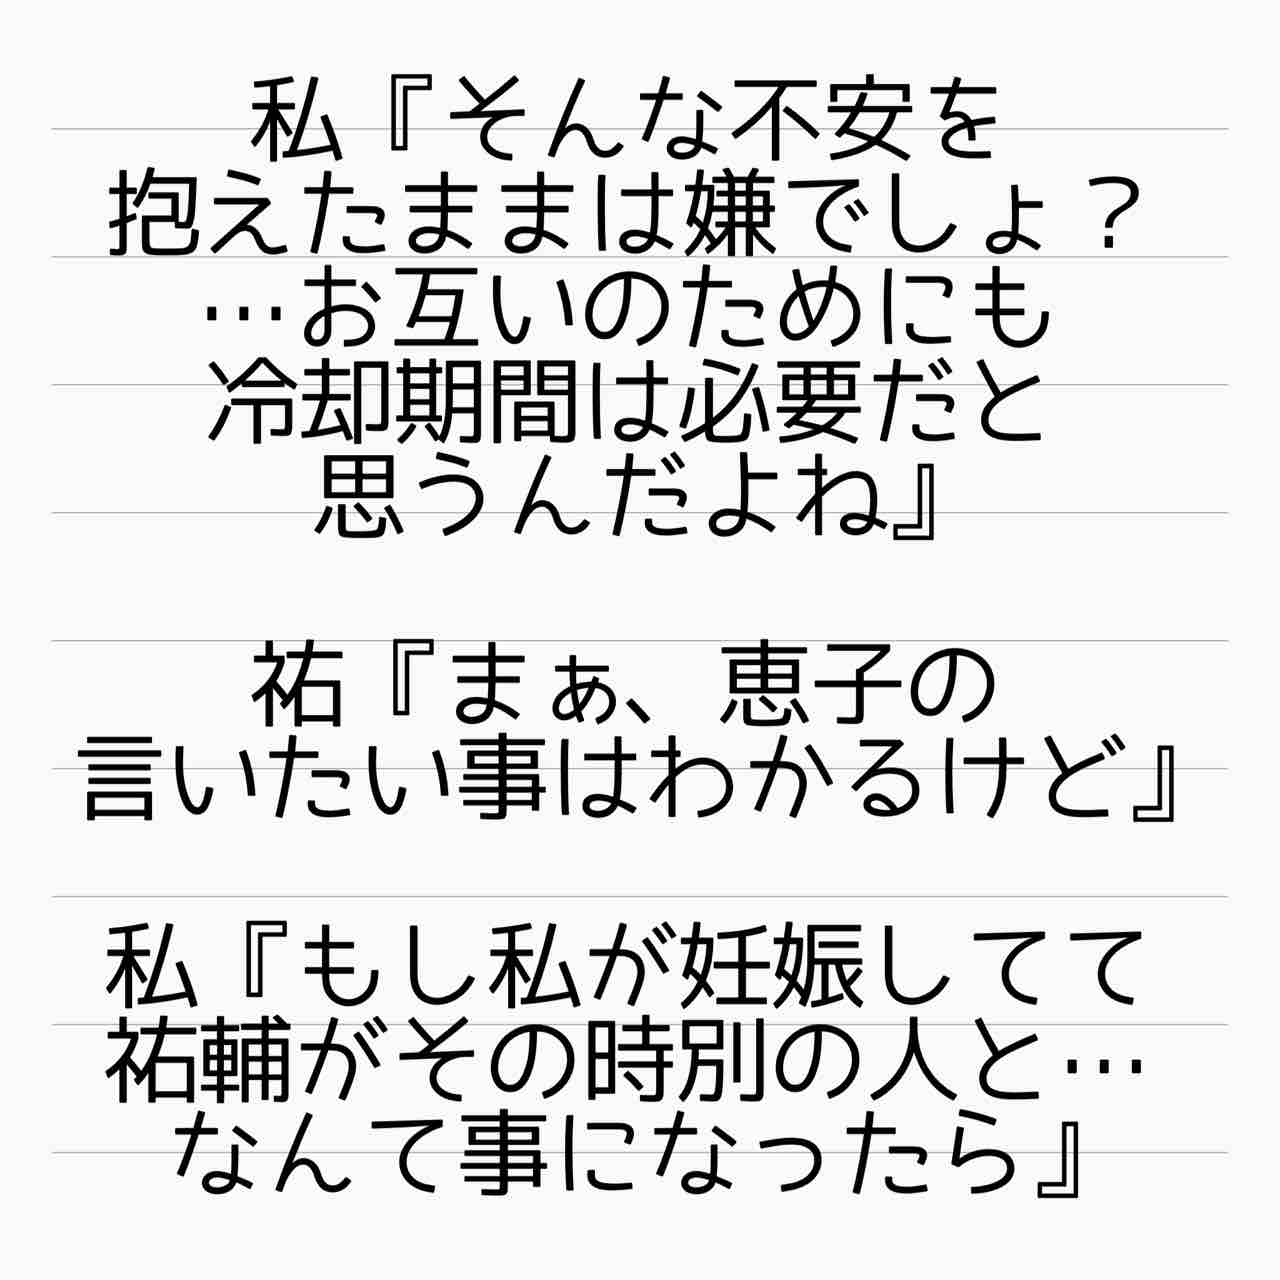 私『そんな不安を
抱えたままは嫌でしょ？
…お互いのためにも
冷却期間は必要だと
思うんだよね』
祐『まぁ、恵子の
言いたい事はわかるけど』
私『もし私が妊娠してて
祐輔がその時別の人と…
なんて事になったら』